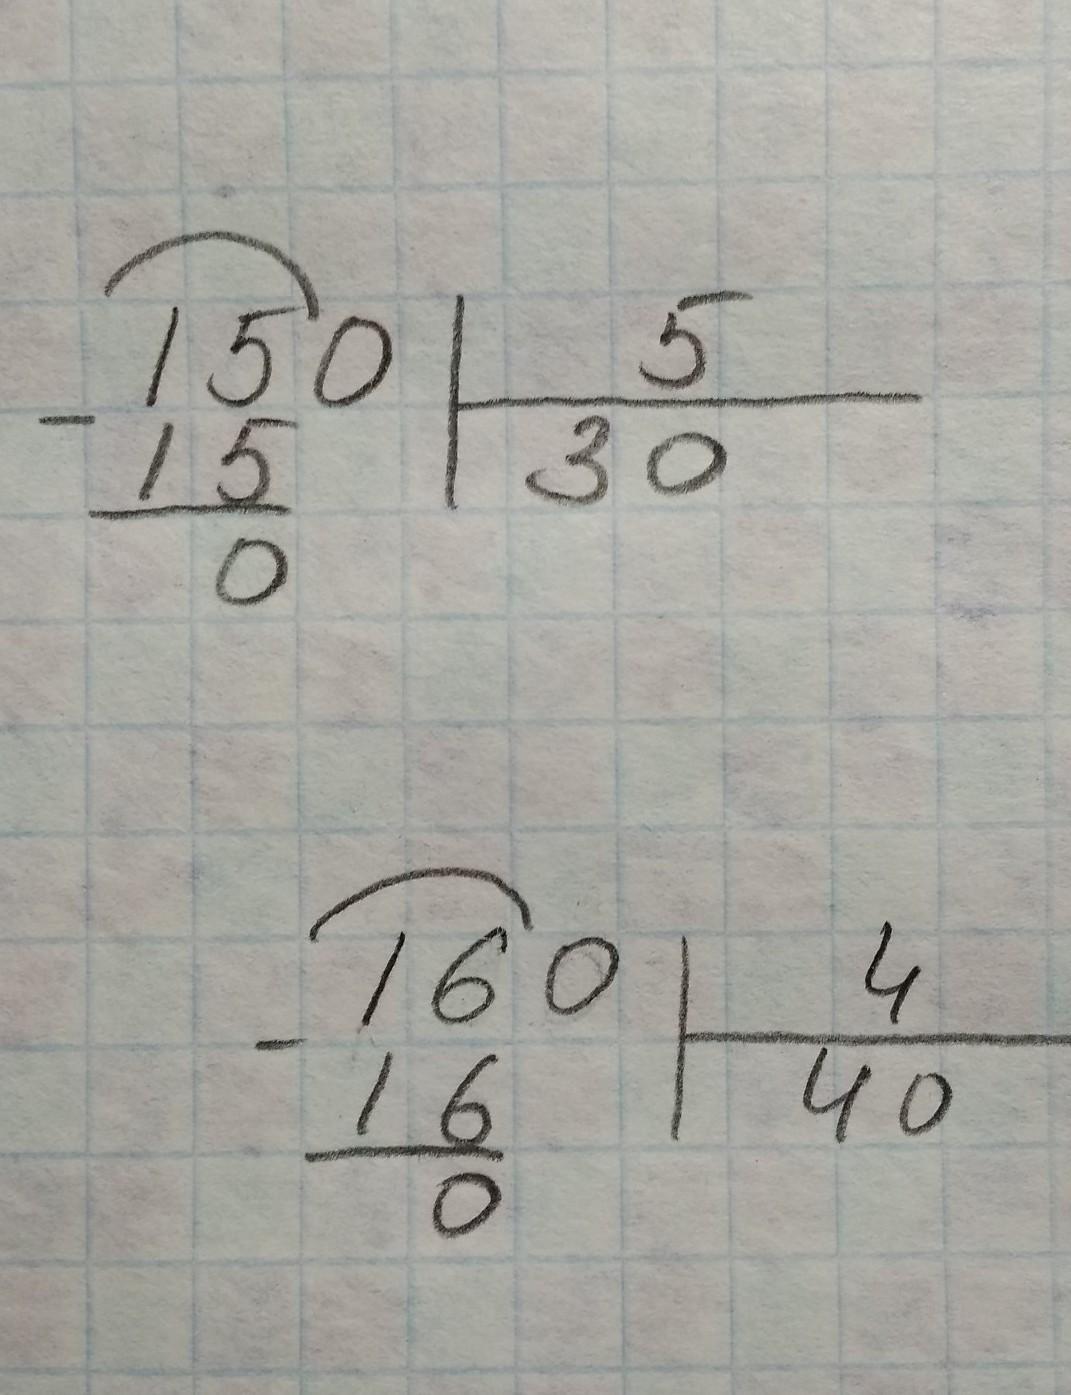 150 | 5
- 15 | 30
0
160 | 4
- 16 | 40
0